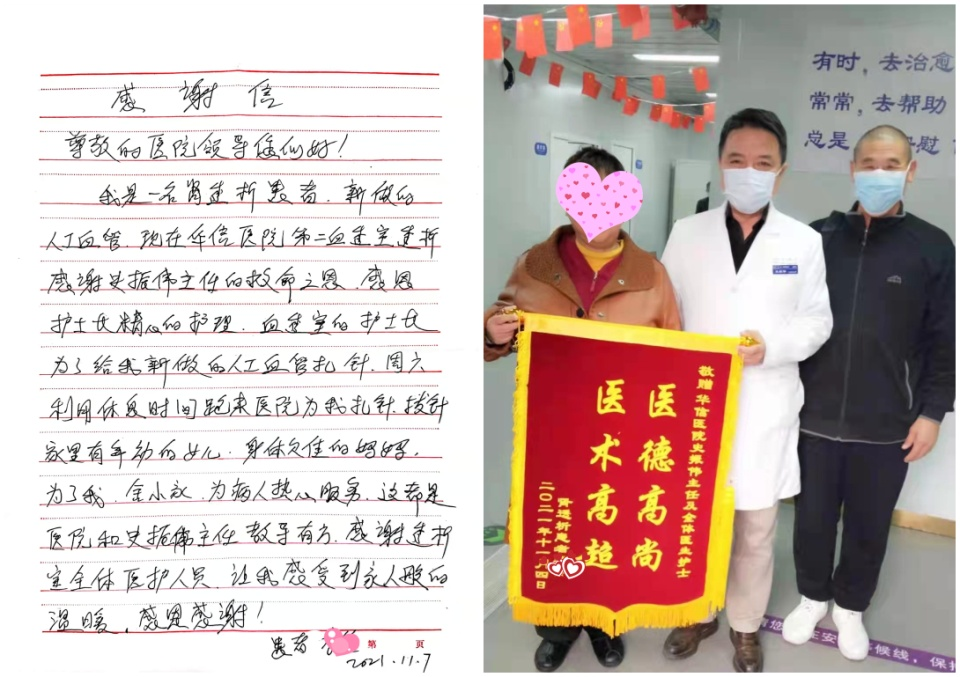 感谢信
尊敬的医院领导您们好！
我是一名肾透析患者，新做的
人工血管，现在华信医院第二血透室透析
感谢史振伟主任的救命之恩，感恩
护士长精心的护理，血透室的护士长
为了给我新做的人工血管扎针，周六
利用休息时间跑来医院为我扎针，拔针
家里有年幼的女儿，身体欠佳的妈妈，
为了我，舍小家，为病人热心服务，这都是
医院和史振伟主任教导有方，感谢透析
室全体医护人员，让我感受到家人般的
温暖，感恩感谢！
患者
第 页
2021.11.7
有时，去治愈
常常，去帮助
总是，慰
敬赠 华信医院史振伟主任及全体医生护士
医德高尚
医术高超
肾透析患者
二〇二一年十一月四日
候线，保